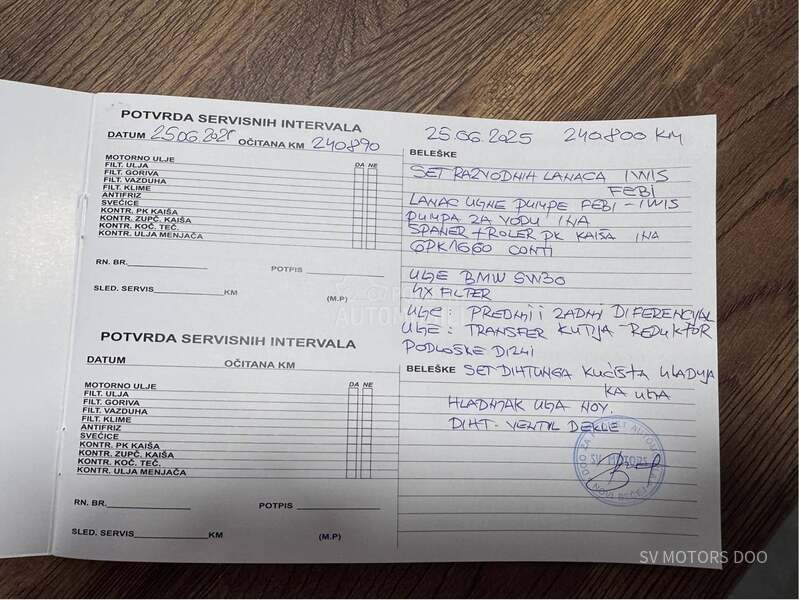 POTVRDA SERVISNIH INTERVALA
DATUM 25.06.2025 OČITANA KM 240890
DA NE
MOTORNO ULJE
FILT. ULJA
FILT. GORIVA
FILT. VAZDUHA
FILT. KLIME
ANTIFRIZ
SVEĆICE
KONTR. PK KAIŠA
KONTR. ZUPČ. KAIŠA
KONTR. KOČ. TEČ.
KONTR. ULJA MENJAČA
RN. BR.
POTPIS
SLED. SERVIS KM
(M.P)
25.06.2025 240800 KM
BELEŠKE
SET RAZVODNIH LANACA IWIS
FEBI
LANAC ULJNE PUMPE FEBI-IWIS
PUMPA ZA VODU INA
ŠPANER + ROLER PK KAIŠA INA
6PK/1660 CONTI
ULJE BMW 5W30
4X FILTER
ULJE: PREDNJI I ZADNJI DIFERENCIJAL
ULJE: TRANSFER KUTIJA-REDUKTOR
PODLOŠKE DIZNI
POTVRDA SERVISNIH INTERVALA
DATUM OČITANA KM
DA NE
MOTORNO ULJE
FILT. ULJA
FILT. GORIVA
FILT. VAZDUHA
FILT. KLIME
ANTIFRIZ
SVEĆICE
KONTR. PK KAIŠA
KONTR. ZUPČ. KAIŠA
KONTR. KOČ. TEČ.
KONTR. ULJA MENJAČA
RN. BR.
POTPIS
SLED. SERVIS KM
(M.P)
BELEŠKE SET DIHTUNGA KUĆIŠTA HLADNJA
KA ULJA
HLADNJAK ULJA NOV.
DIHT. VENTIL DEKLE
SV MOTORS
SV MOTORS DOO